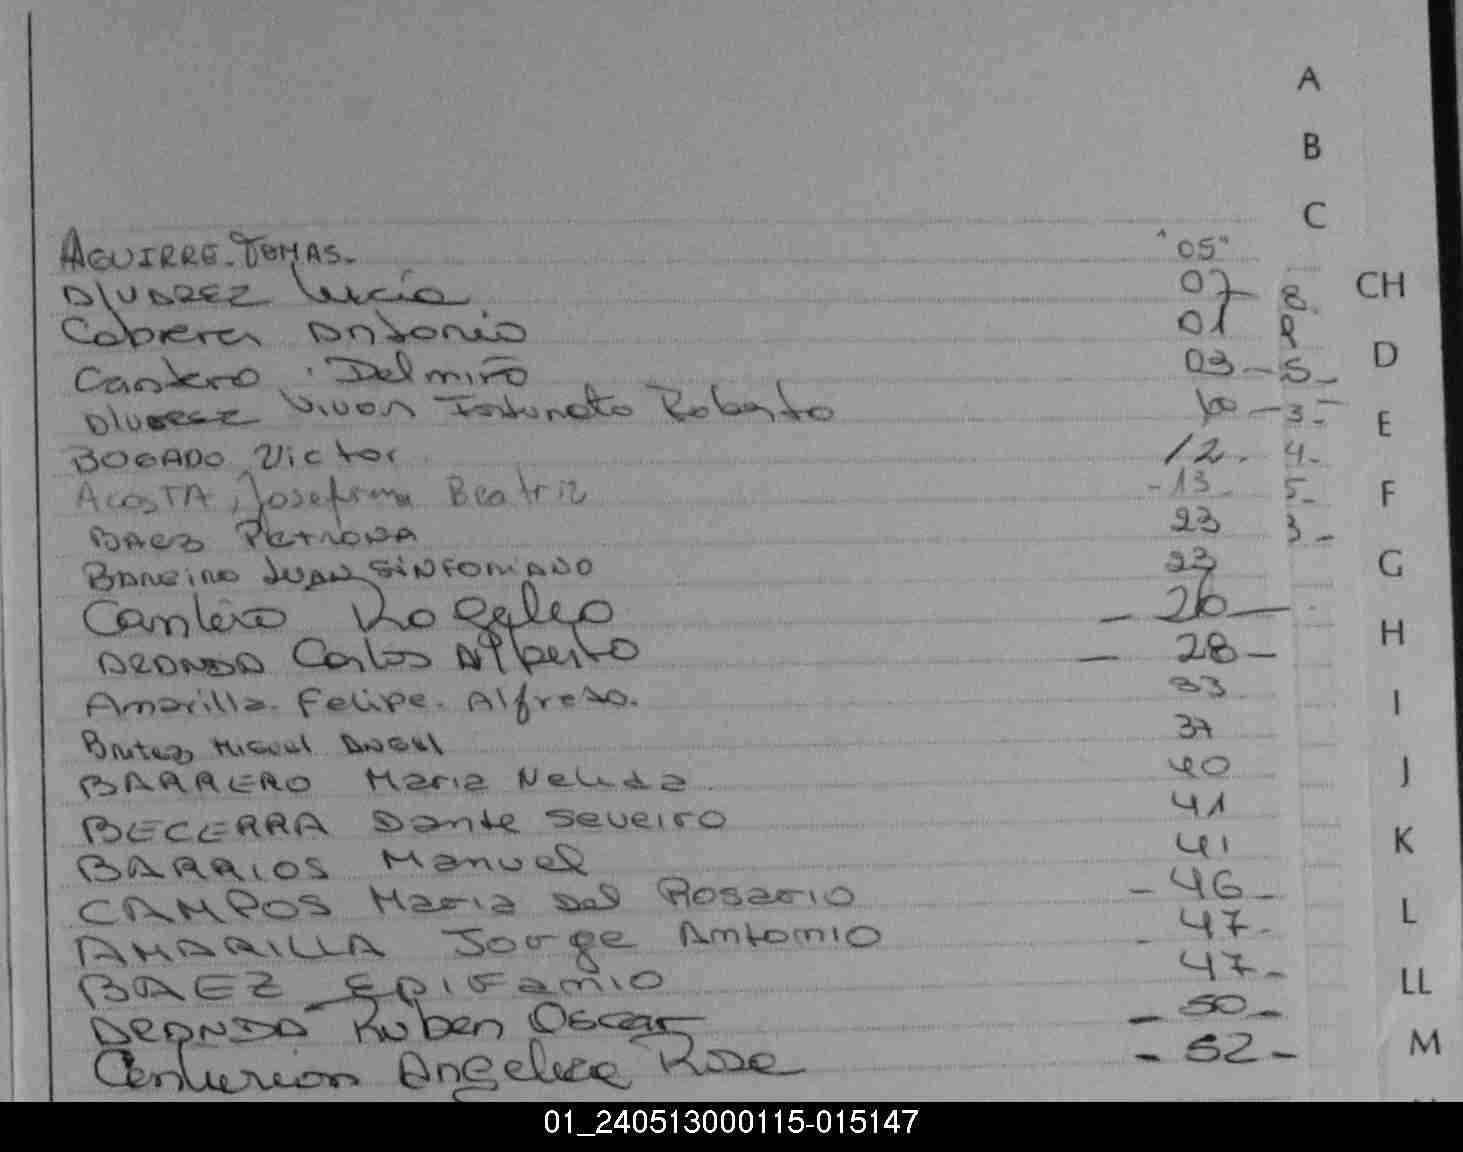 A
B
C
AGUIRRE. TOMAS. "05"
Alvarez Lucia 07 8.
CH
Cabrera Antonio 01
D
Cantero Delmiro 03 - 5 -
Alvarez Vivon Fortunato Roberto 10 - 3 -
E
BOGADO, Victor 12. 4 -
ACOSTA, Josefina Beatriz - 13 5 -
F
BAEZ PETRONA 23 3 -
BAREIRO JUAN SINFORIANO 23
G
Cantero Rogelio - 26 -
H
ARANDA Carlos Alberto - 28 -
Amarilla. Felipe. Alfredo. 33
I
Miguel Angel 37
J
BARRERO Maria Nelida 40
BECERRA Dante Seveiro 41
K
BARRIOS Manuel 41
CAMPOS Maria del Rosario - 46 -
L
AMARILLA Jorge Antonio - 47 -
BAEZ Epifanio 47 -
LL
ARANDA Ruben Oscar - 50 -
M
Centurion Angelica Rosa - 52 -
01_240513000115-015147